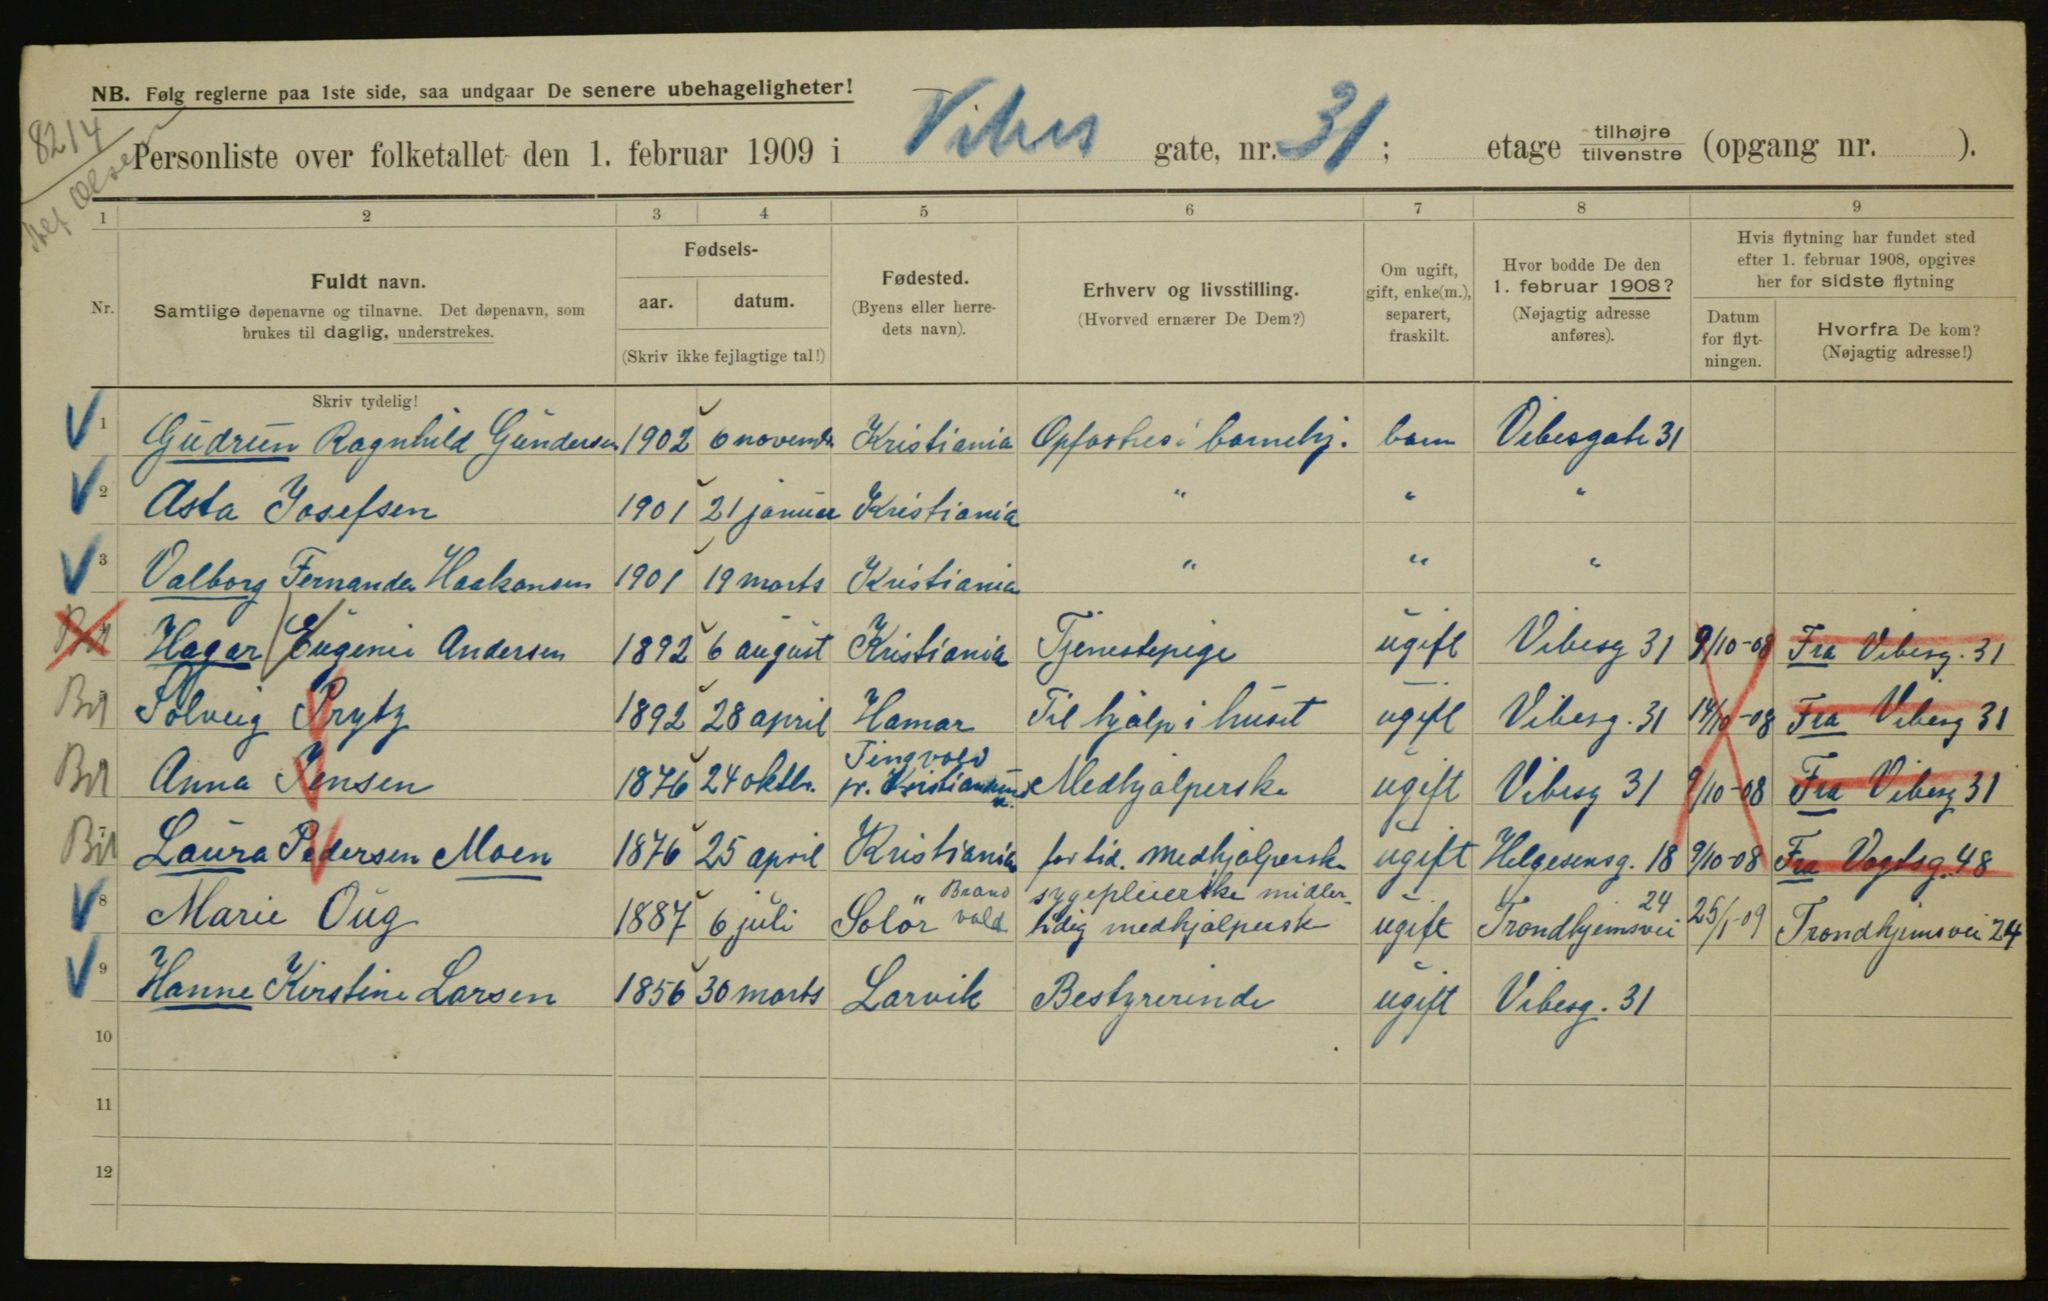 NB. Følg reglerne paa 1ste side, saa undgaar De senere ubehageligheter!
8214
Olsen
Personliste over folketallet den 1. februar 1909 i Vibes gate, nr. 31; etage tilhøjre/tilvenstre (opgang nr. ).
1 2 3 4 5 6 7 8 9
Nr.
Fuldt navn.
Samtlige døpenavne og tilnavne. Det døpenavn, som
brukes til daglig, understrekes.
Fødsels-
aar. datum.
(Skriv ikke fejlagtige tal!)
Fødested.
(Byens eller herre-
dets navn).
Erhverv og livsstilling.
(Hvorved ernærer De Dem?)
Om ugift,
gift, enke(m.),
separert,
fraskilt.
Hvor bodde De den
1. februar 1908?
(Nøjagtig adresse
anføres).
Hvis flytning har fundet sted
efter 1. februar 1908, opgives
her for sidste flytning
Datum
for flyt-
ningen.
Hvorfra De kom?
(Nøjagtig adresse!)
Skriv tydelig!
1 Gudrun Ragnhild Gundersen 1902 6 novembr Kristiania Opfostres i barnehj. barn Vibesgate 31
2 Asta Josefsen 1901 21 januar Kristiania " " "
3 Valborg Fernanda Haakonsen 1901 19 marts Kristiania " " "
Hagar Eugenie Andersen 1892 6 august Kristiania Tjenestepige ugift Vibesg 31 9/10-08 Fra Vibesg. 31
Solveig Prytz 1892 28 april Hamar Til hjælp i huset ugift Vibesg. 31 14/10-08 Fra Vibesg 31
Anna Jensen 1876 24 oktbr. Tingvold pr. Kristiansund N. Medhjælperske ugift Vibesg 31 9/10-08 Fra Vibesg 31
7 Laura Pedersen Moen 1876 25 april Kristiania for tid. medhjælperske ugift Helgesensg. 18 9/10-08 Fra Vogtsg. 48
8 Marie Oug 1887 6 juli Solör Brandvold sygepleierske midlertidig medhjælpersk ugift Trondhjemsvei 24 25/1-09 Trondhjemsvei 24
9 Hanne Kirstine Larsen 1856 30 marts Larvik Bestyrerinde ugift Vibesg. 31
10
11
12